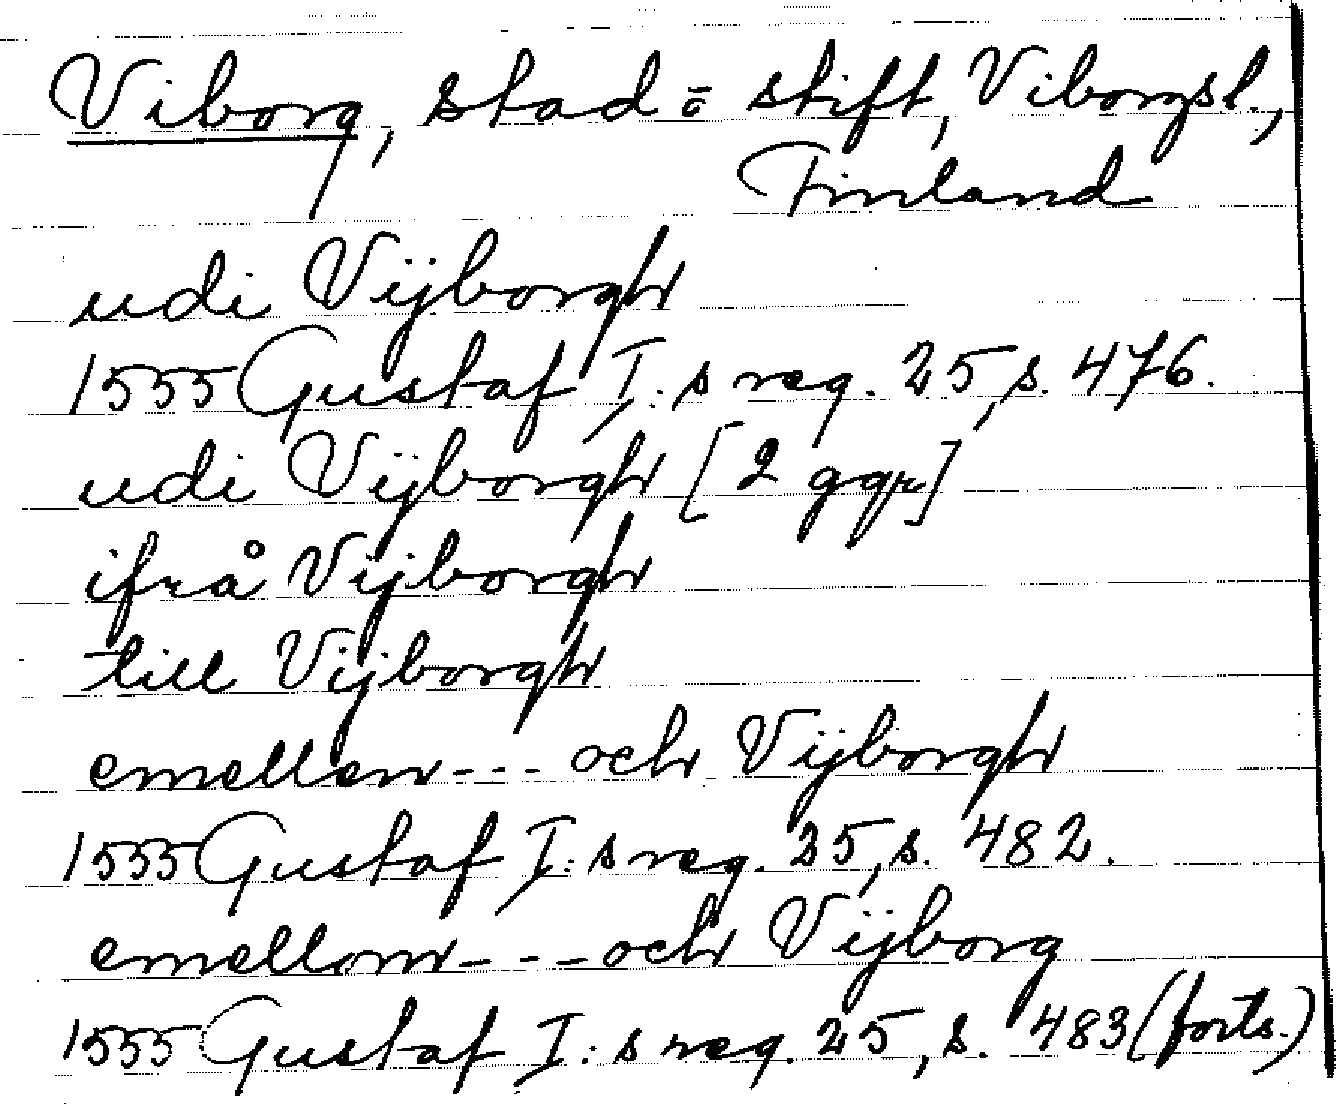 Viborg, stad o stift, Viborgsl.,
Finland
udi Vijborgh
1555 Gustaf I:s reg. 25, s. 476.
udi Vijborgh [2 ggr]
ifrå Vijborgh
till Vijborgh
emellen --- och Vijborgh
1555 Gustaf I:s reg. 25, s. 482.
emellom --- och Vijborg
1555 Gustaf I:s reg. 25, s. 483 (forts.)